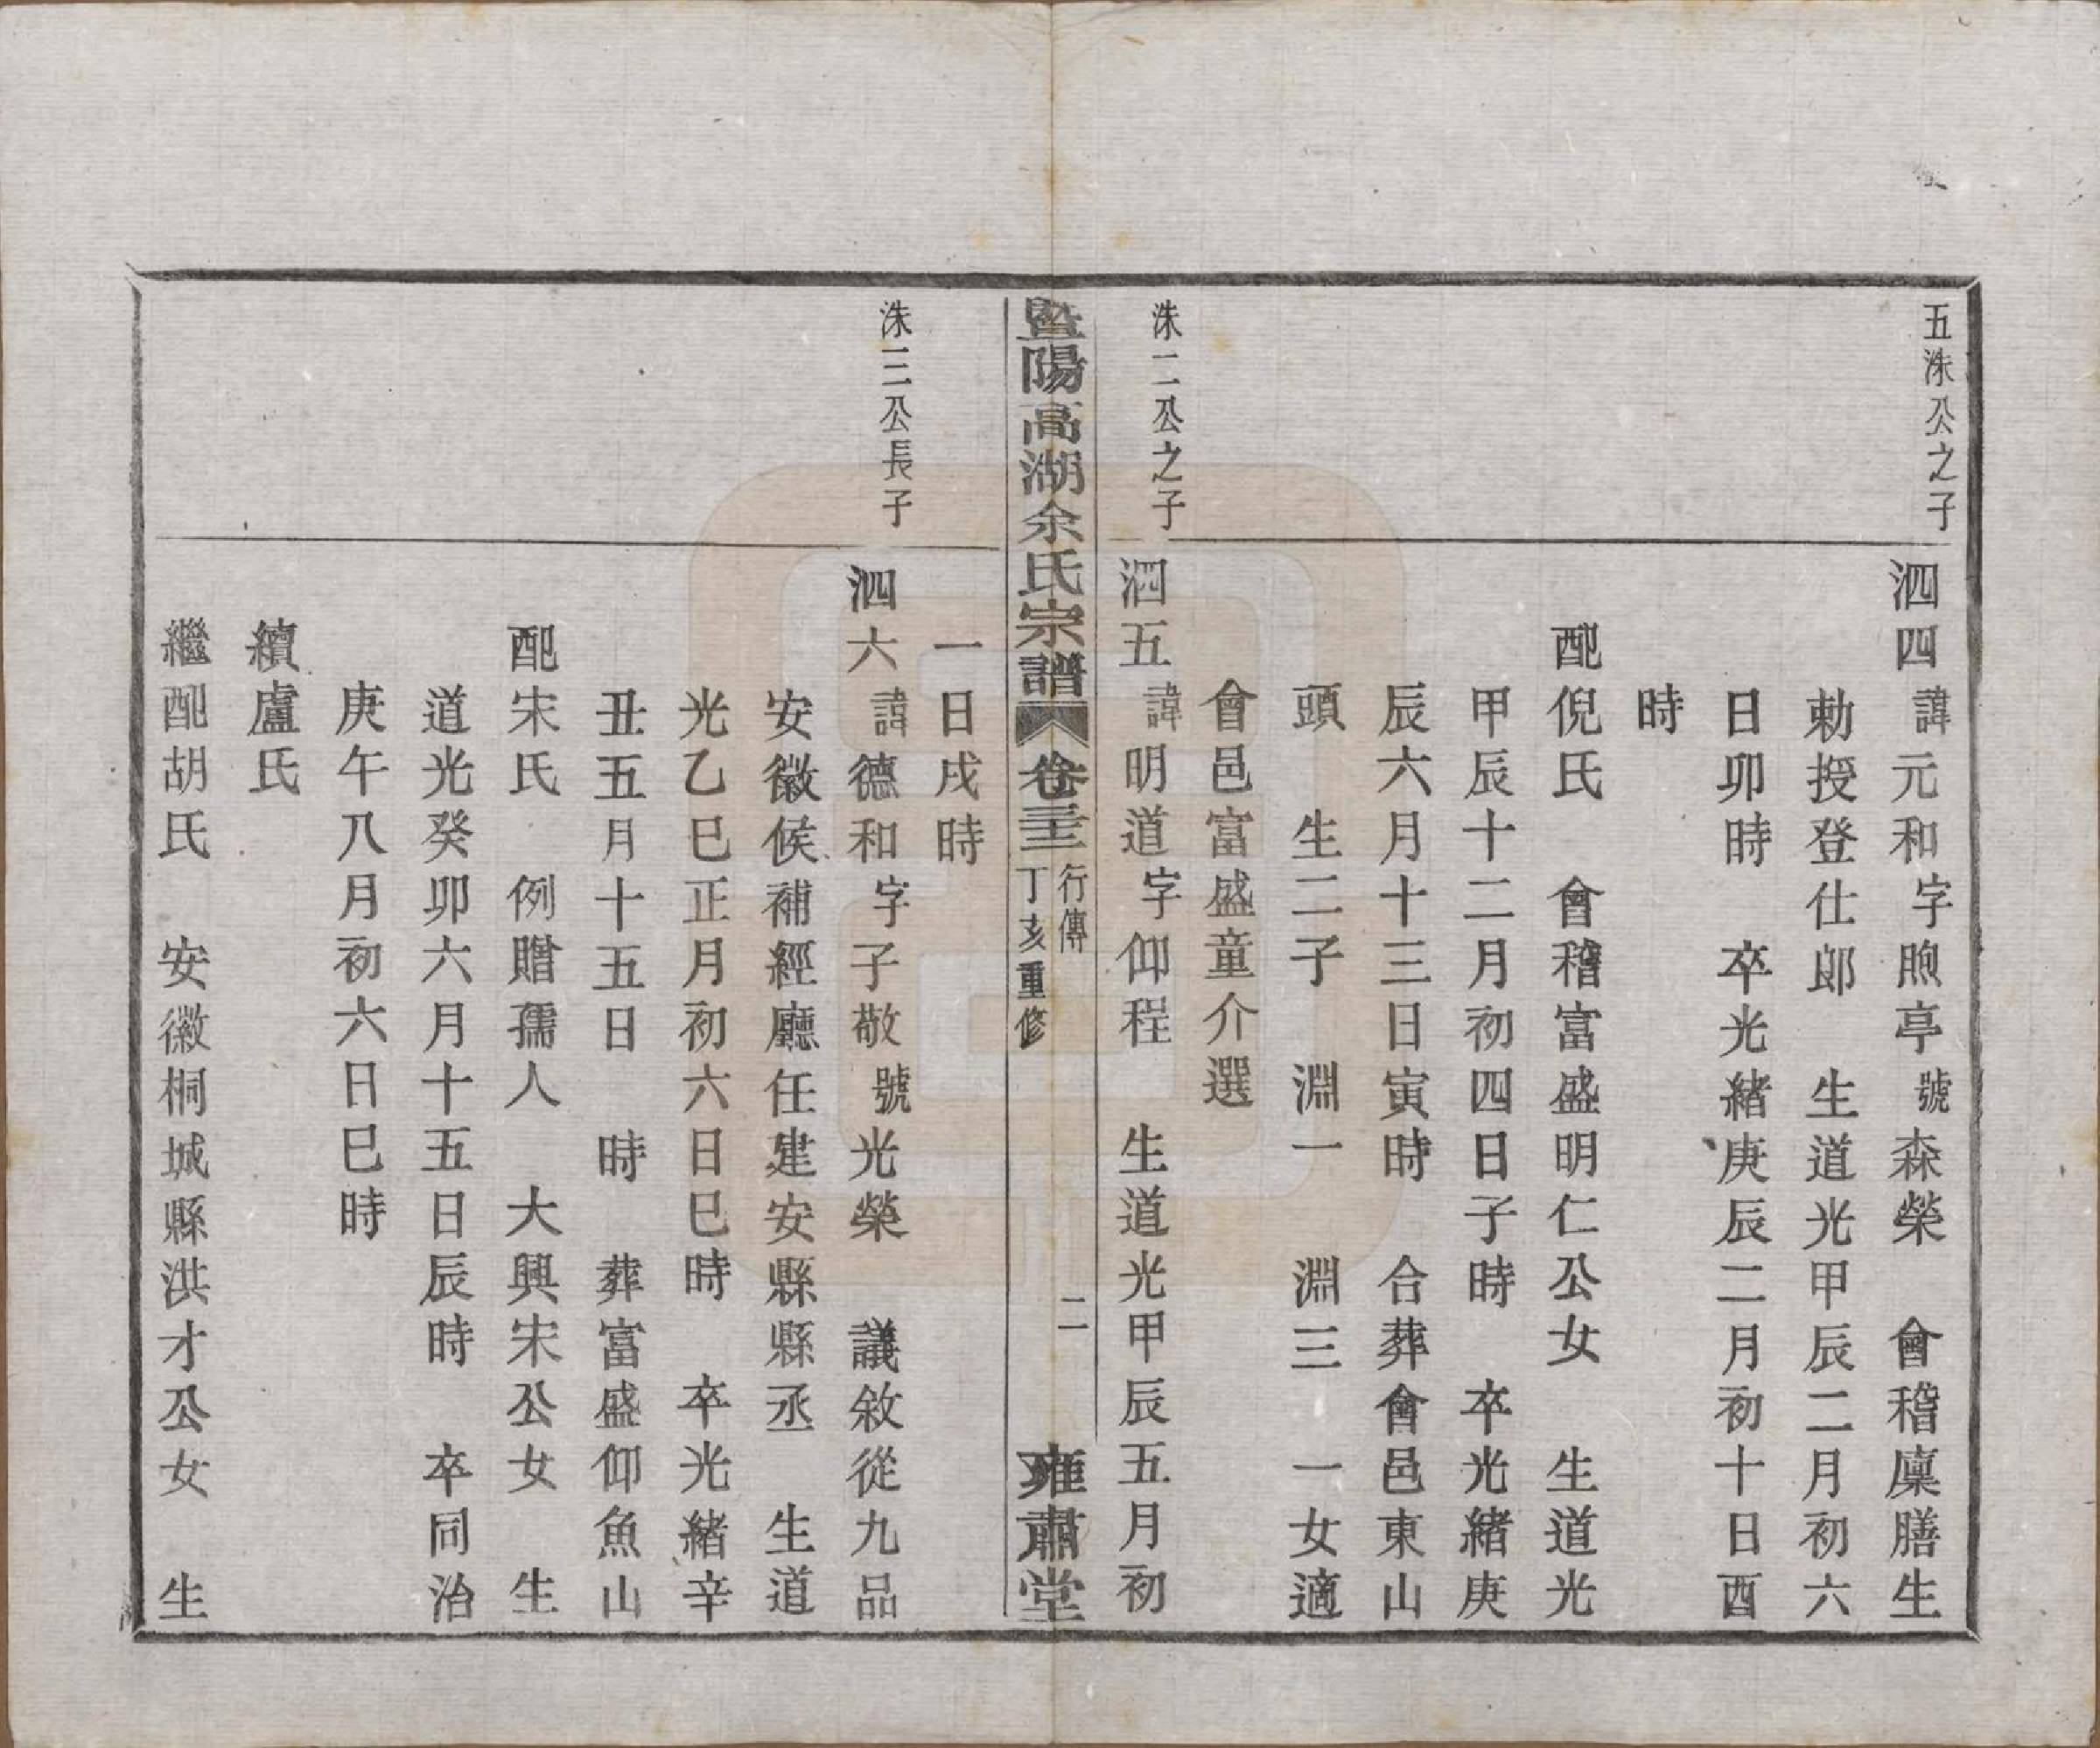 五洙公之子
泗四諱元和字煦亭號森榮　會稽廩膳生
勅授登仕郎　生道光甲辰二月初六
日卯時　卒光緒庚辰二月初十日酉
時
配倪氏　會稽富盛明仁公女　生道光
甲辰十二月初四日子時　卒光緒庚
辰六月十三日寅時　合葬會邑東山
頭　生二子　淵一　淵三　一女適
會邑富盛童介選
洙二公之子
泗五諱明道字仰程　生道光甲辰五月初
暨陽高湖余氏宗譜　卷三十三　行傳　丁亥重修　二　雍肅堂
一日戌時
洙三公長子
泗六諱德和字子敬號光榮　議敘從九品
安徽候補經廳任建安縣縣丞　生道
光乙巳正月初六日巳時　卒光緒辛
丑五月十五日　時　葬富盛仰魚山
配宋氏　例贈孺人　大興宋公女　生
道光癸卯六月十五日辰時　卒同治
庚午八月初六日巳時
續盧氏
繼配胡氏　安徽桐城縣洪才公女　生